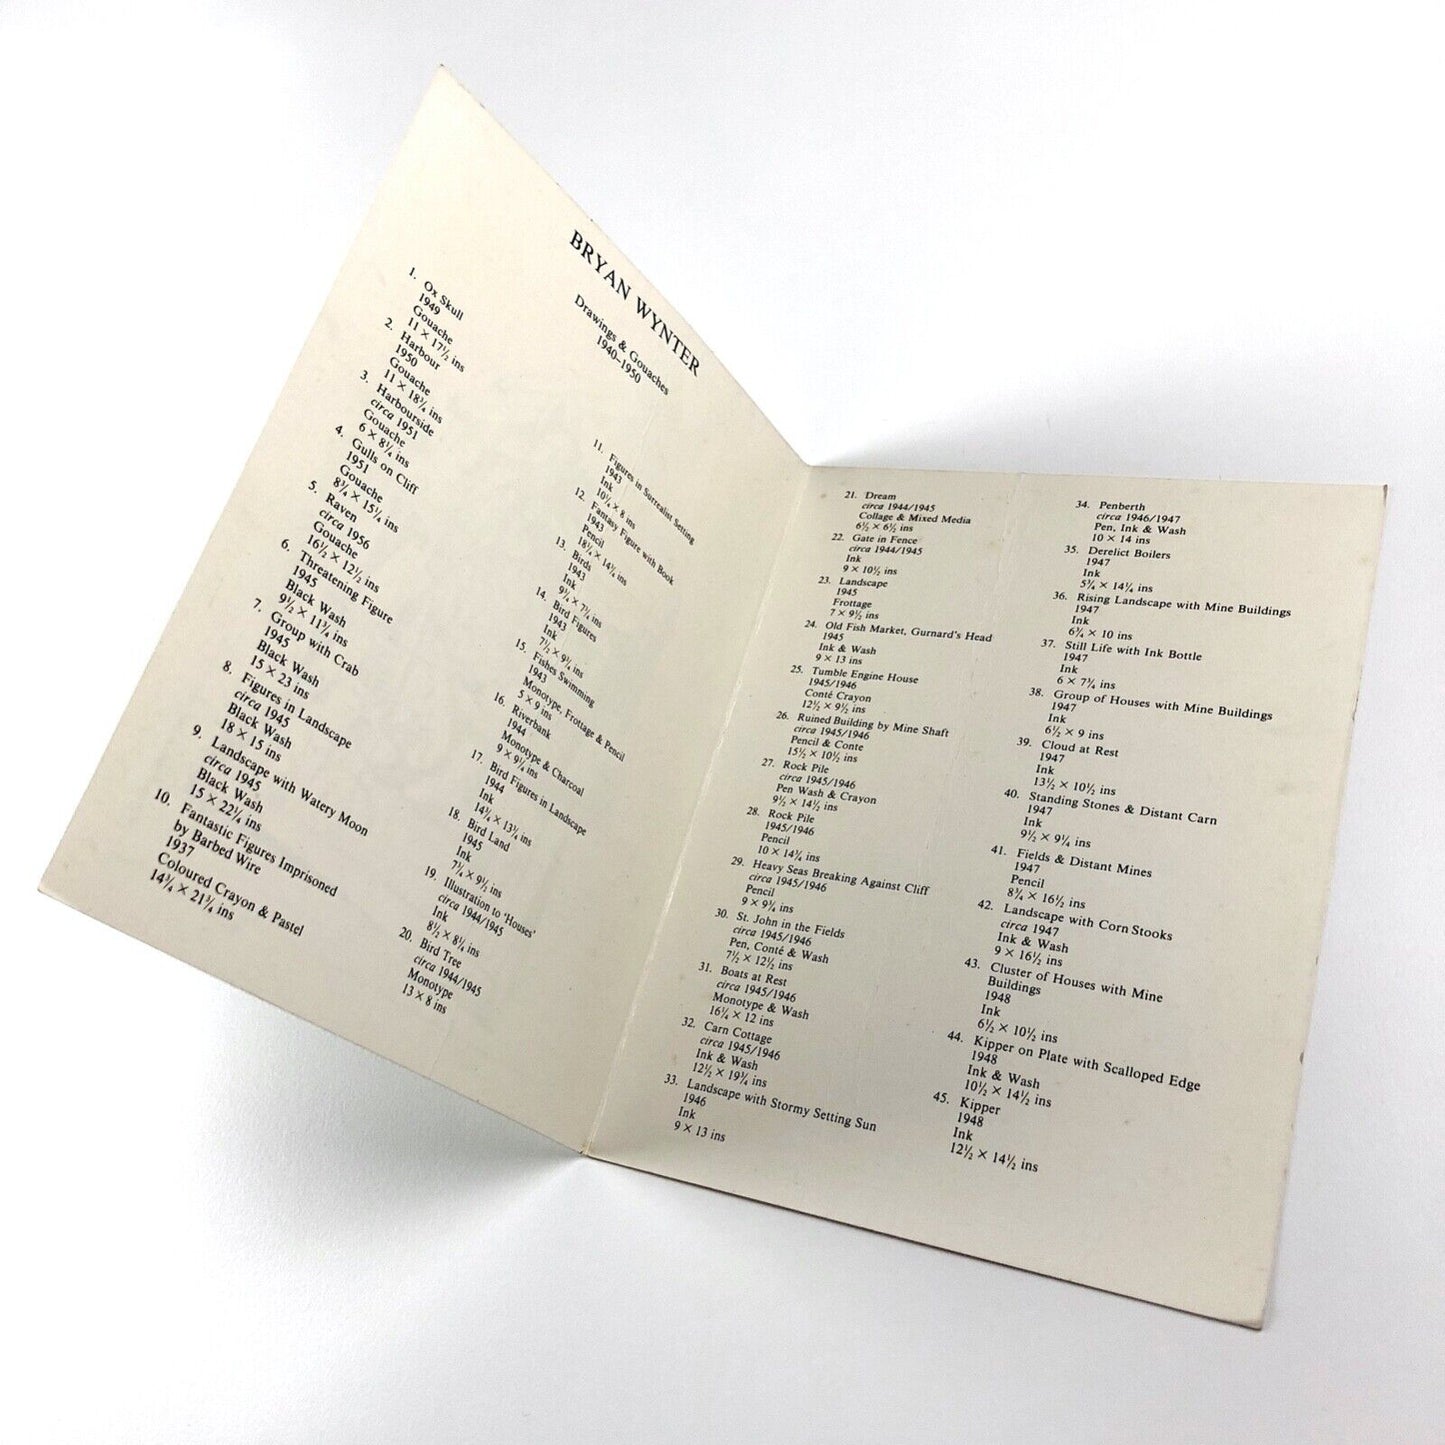 BRYAN WYNTER
Drawings & Gouaches
1940–1950
1. Ox Skull
1949
Gouache
11 × 17½ ins
2. Harbour
1950
Gouache
11 × 18¾ ins
3. Harbourside
circa 1951
Gouache
6 × 8¼ ins
4. Gulls on Cliff
1951
Gouache
8¾ × 15¼ ins
5. Raven
circa 1956
Gouache
16½ × 12½ ins
6. Threatening Figure
1945
Black Wash
9½ × 11¾ ins
7. Group with Crab
1945
Black Wash
15 × 23 ins
8. Figures in Landscape
circa 1945
Black Wash
18 × 15 ins
9. Landscape with Watery Moon
circa 1945
Black Wash
15 × 22¼ ins
10. Fantastic Figures Imprisoned
by Barbed Wire
1937
Coloured Crayon & Pastel
14¾ × 21¾ ins
11. Figures in Surrealist Setting
1943
Ink
10¼ × 8 ins
12. Fantasy Figure with Book
1943
Pencil
18¼ × 14¼ ins
13. Birds
1943
Ink
9¼ × 7¼ ins
14. Bird Figures
1943
Ink
7½ × 9¾ ins
15. Fishes Swimming
1943
Monotype, Frottage & Pencil
5 × 9 ins
16. Riverbank
1944
Monotype & Charcoal
9 × 9¼ ins
17. Bird Figures in Landscape
1944
Ink
14¾ × 13¼ ins
18. Bird Land
1945
Ink
7¼ × 9½ ins
19. Illustration to 'Houses'
circa 1944/1945
Ink
8½ × 8¼ ins
20. Bird Tree
circa 1944/1945
Monotype
13 × 8 ins
21. Dream
circa 1944/1945
Collage & Mixed Media
6½ × 6½ ins
22. Gate in Fence
circa 1944/1945
Ink
9 × 10½ ins
23. Landscape
1945
Frottage
7 × 9½ ins
24. Old Fish Market, Gurnard's Head
1945
Ink & Wash
9 × 13 ins
25. Tumble Engine House
1945/1946
Conté Crayon
12½ × 9½ ins
26. Ruined Building by Mine Shaft
circa 1945/1946
Pencil & Conte
15½ × 10½ ins
27. Rock Pile
circa 1945/1946
Pen Wash & Crayon
9½ × 14½ ins
28. Rock Pile
1945/1946
Pencil
10 × 14¾ ins
29. Heavy Seas Breaking Against Cliff
circa 1945/1946
Pencil
9 × 9¾ ins
30. St. John in the Fields
circa 1945/1946
Pen, Conté & Wash
7½ × 12½ ins
31. Boats at Rest
circa 1945/1946
Monotype & Wash
16¼ × 12 ins
32. Carn Cottage
circa 1945/1946
Ink & Wash
12½ × 19¾ ins
33. Landscape with Stormy Setting Sun
1946
Ink
9 × 13 ins
34. Penberth
circa 1946/1947
Pen, Ink & Wash
10 × 14 ins
35. Derelict Boilers
1947
Ink
5¾ × 14¼ ins
36. Rising Landscape with Mine Buildings
1947
Ink
6¾ × 10 ins
37. Still Life with Ink Bottle
1947
Ink
6 × 7¾ ins
38. Group of Houses with Mine Buildings
1947
Ink
6½ × 9 ins
39. Cloud at Rest
1947
Ink
13½ × 10½ ins
40. Standing Stones & Distant Carn
1947
Ink
9½ × 9¼ ins
41. Fields & Distant Mines
1947
Pencil
8¾ × 16½ ins
42. Landscape with Corn Stooks
circa 1947
Ink & Wash
9 × 16½ ins
43. Cluster of Houses with Mine
Buildings
1948
Ink
6½ × 10½ ins
44. Kipper on Plate with Scalloped Edge
1948
Ink & Wash
10½ × 14½ ins
45. Kipper
1948
Ink
12½ × 14½ ins